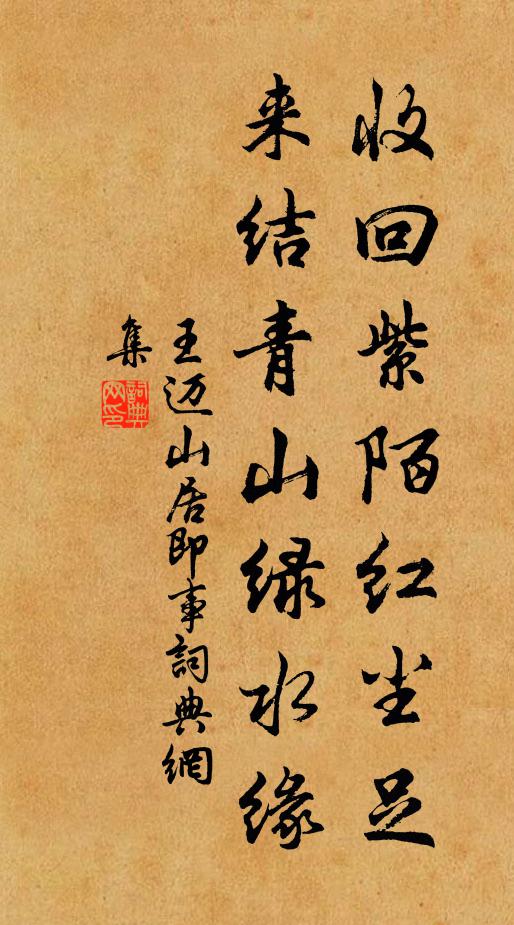 收回紫陌红尘足
来结青山绿水缘
王迈山居即事詞典網
集
詞典
网印